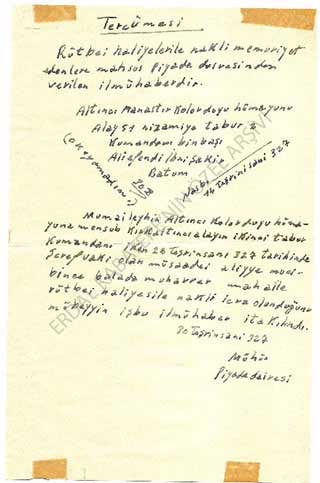 Tercümesi
Rütbei haliyelerile nakli memuriyet
edenlere mahsus Piyade dosyesinden
verilen ilmühaberdir.
Altıncı Manastır Kolordugu hümayunu
Alay 51 nizamiye tabur 2
Kumandanı binbaşı
Ali efendi ibni Şakir
Batum
(okeyamadım.)
Naibi
14 Teşrini sani 327
Mumaileyhin Altıncı Kolordugu hüma-
yuna mensub Kırkaltıncı alayın ikinci tabur
Kumandanı iken 26 Teşrinsani 327 tarihinde
Şerefvaki olan müsaadei aliyye muci-
bince balada muharrer mahaile
rütbei haliyesile nakli icra olunduğunu
mübeyyin işbu ilmühaber ita kılındı.
30 Teşrinsani 327
Mühür
Piyade dairesi